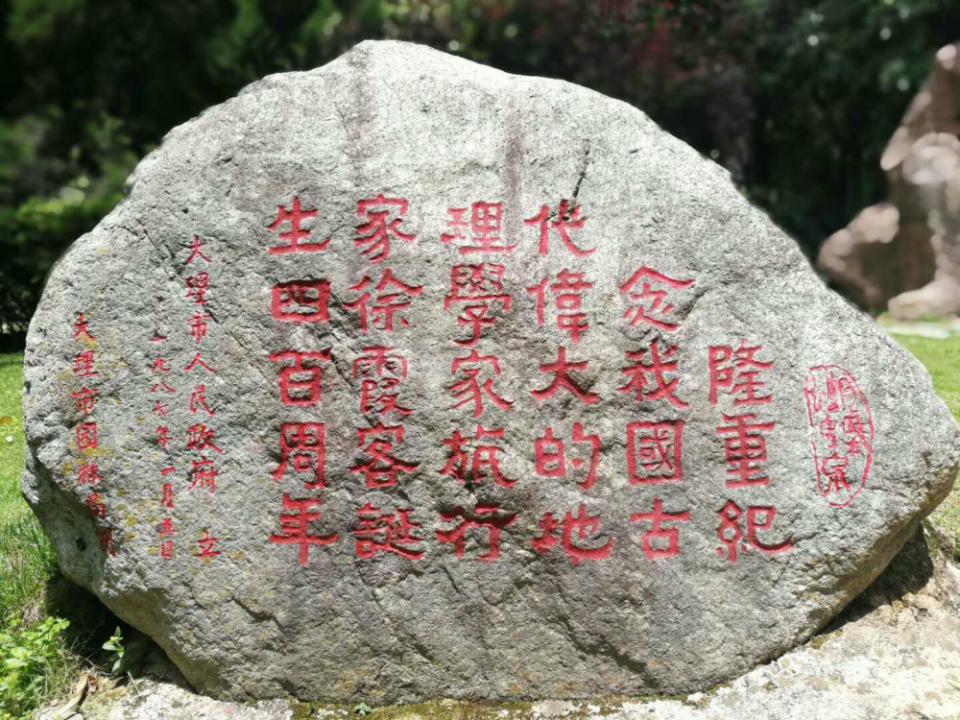 隆重紀
念我國古
代偉大的地
理學家旅行
家徐霞客誕
生四百周年
大理市人民政府 立
一九八七年一月五日
大理市園林